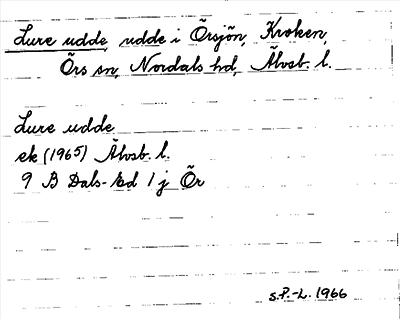 Lure udde, udde i Örsjön, Kroken,
Örs sn, Nordals hd, Älvsb. l.
Lure udde
ek (1965) Älvsb. l.
9 B Dals-Ed 1 j Ör
S.P.-L. 1966